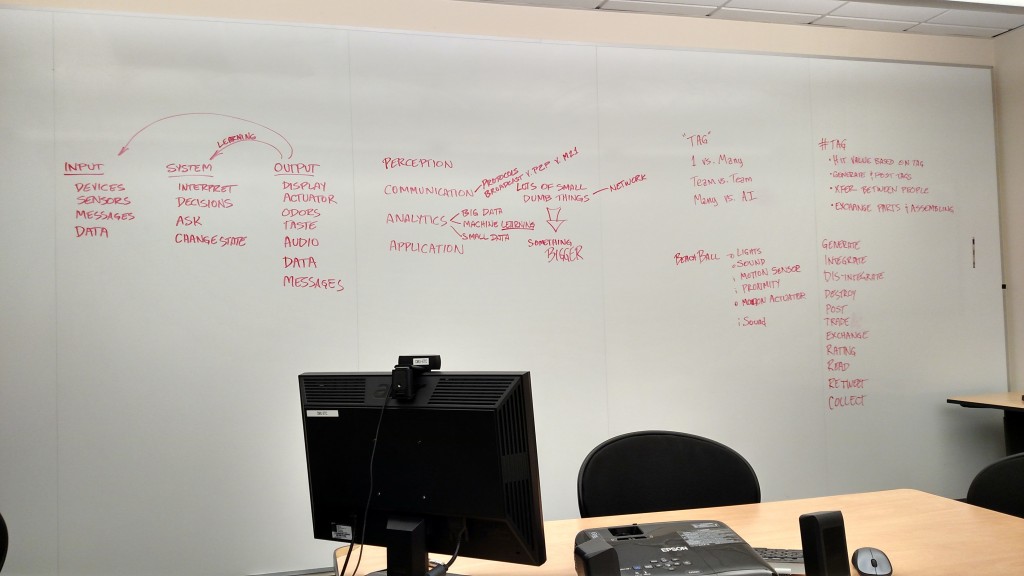 LEARNING
INPUT
DEVICES
SENSORS
MESSAGES
DATA
SYSTEM
INTERPRET
DECISIONS
ASK
CHANGE STATE
OUTPUT
DISPLAY
ACTUATOR
ODORS
TASTE
AUDIO
DATA
MESSAGES
PERCEPTION
COMMUNICATION
PROTOCOLS
BROADCAST v. P2P v M21
ANALYTICS
BIG DATA
MACHINE LEARNING
SMALL DATA
APPLICATION
LOTS OF SMALL
DUMB THINGS
NETWORK
SOMETHING
BIGGER
"TAG"
1 vs. Many
Team vs. Team
Many vs. AI
BEACH BALL
LIGHTS
SOUND
i MOTION SENSOR
i PROXIMITY
o MOTION ACTUATOR
i Sound
#TAG
• HIT VALUE BASED ON TAG
• GENERATE & POST TAGS
• XFER BETWEEN PEOPLE
• EXCHANGE PARTS & ASSEMBLING
GENERATE
INTEGRATE
DISINTEGRATE
DESTROY
POST
TRADE
EXCHANGE
RATING
READ
RETWEET
COLLECT
EPSON